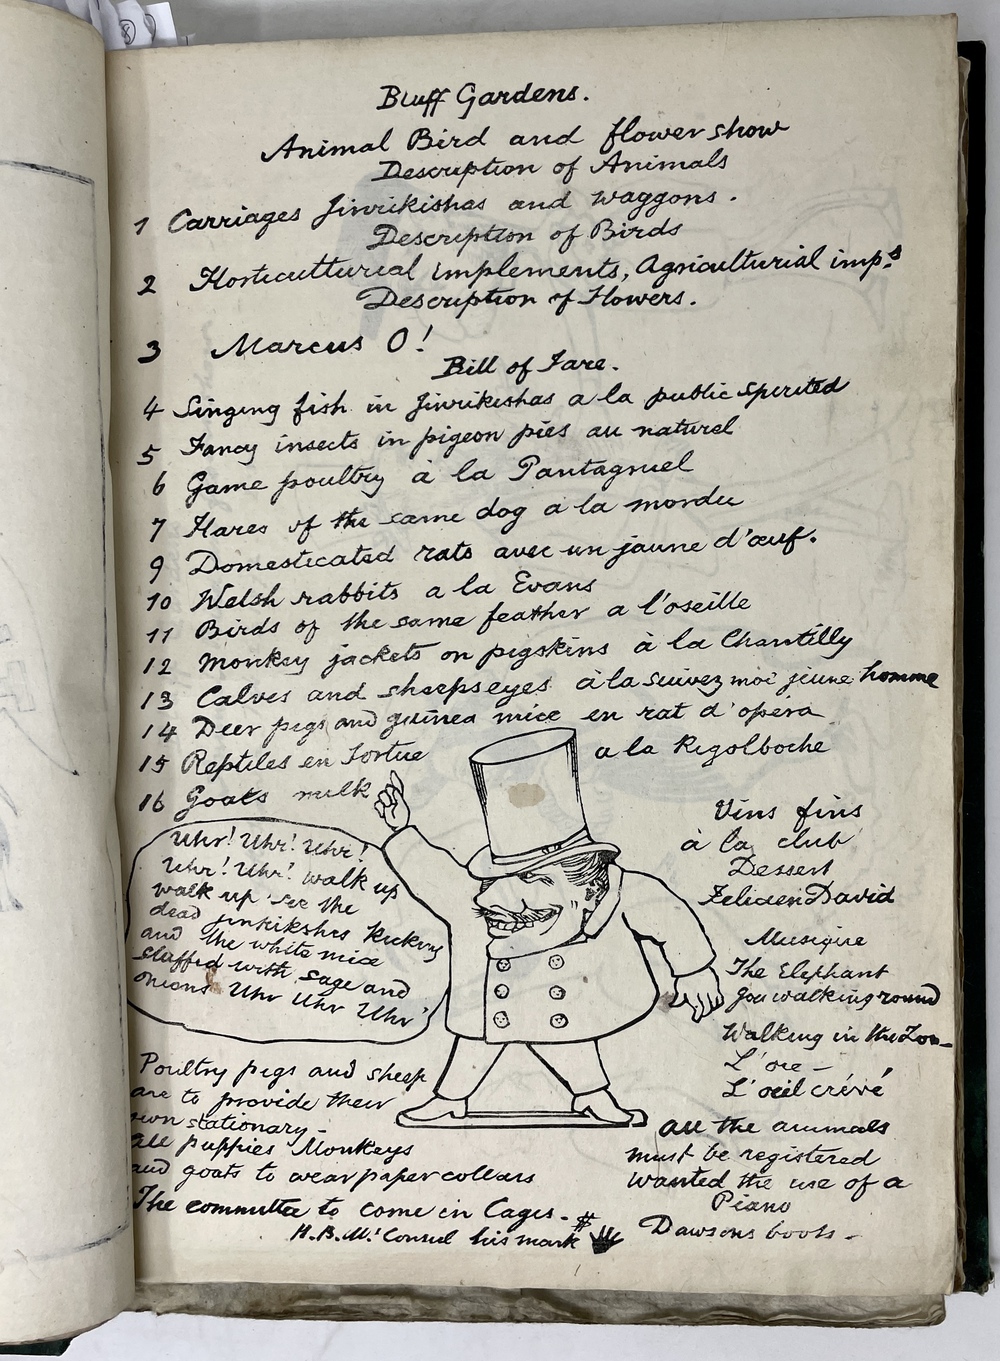 Bluff Gardens.
Animal Bird and flower show
Description of Animals
1 Carriages Jinrikishas and waggons.
Description of Birds
2 Horticulturial implements, Agriculturial imps
Description of Flowers.
3 Marcus O!
Bill of Fare.
4 Singing fish in Jinrikishas a la public spirited
5 Fancy insects in pigeon pies au naturel
6 Game poultry à la Pantagruel
7 Hares of the same dog a la mordu
9 Domesticated rats avec un jaune d'œuf.
10 Welsh rabbits a la Evans
11 Birds of the same feather a l'oseille
12 Monkey jackets on pigskins à la Chantilly
13 Calves and sheepseyes à la suivez moi jeune homme
14 Deer pegs and guinea mice en rat d'opera
15 Reptiles en Tortue
a la Rigolboche
16 Goats milk
Uhr! Uhr! Uhr!
Uhr! Uhr! walk up
walk up see the
dead jinrikshas kicking
and the white mice
stuffed with sage and
onions Uhr Uhr Uhr'
Vins fins
à la club
Dessert
Felicien David
Musique
The Elephant
goa walking round
Walking in the Zoo-
L'oie -
L'œil crévé
Poultry pegs and sheep
are to provide their
own stationary -
all puppies Monkeys
and goats to wear paper collars
The committee to come in Cages. -
H.B.M.' Consul his mark
all the animals
must be registered
wanted the use of a
Piano
Dawsons boots -